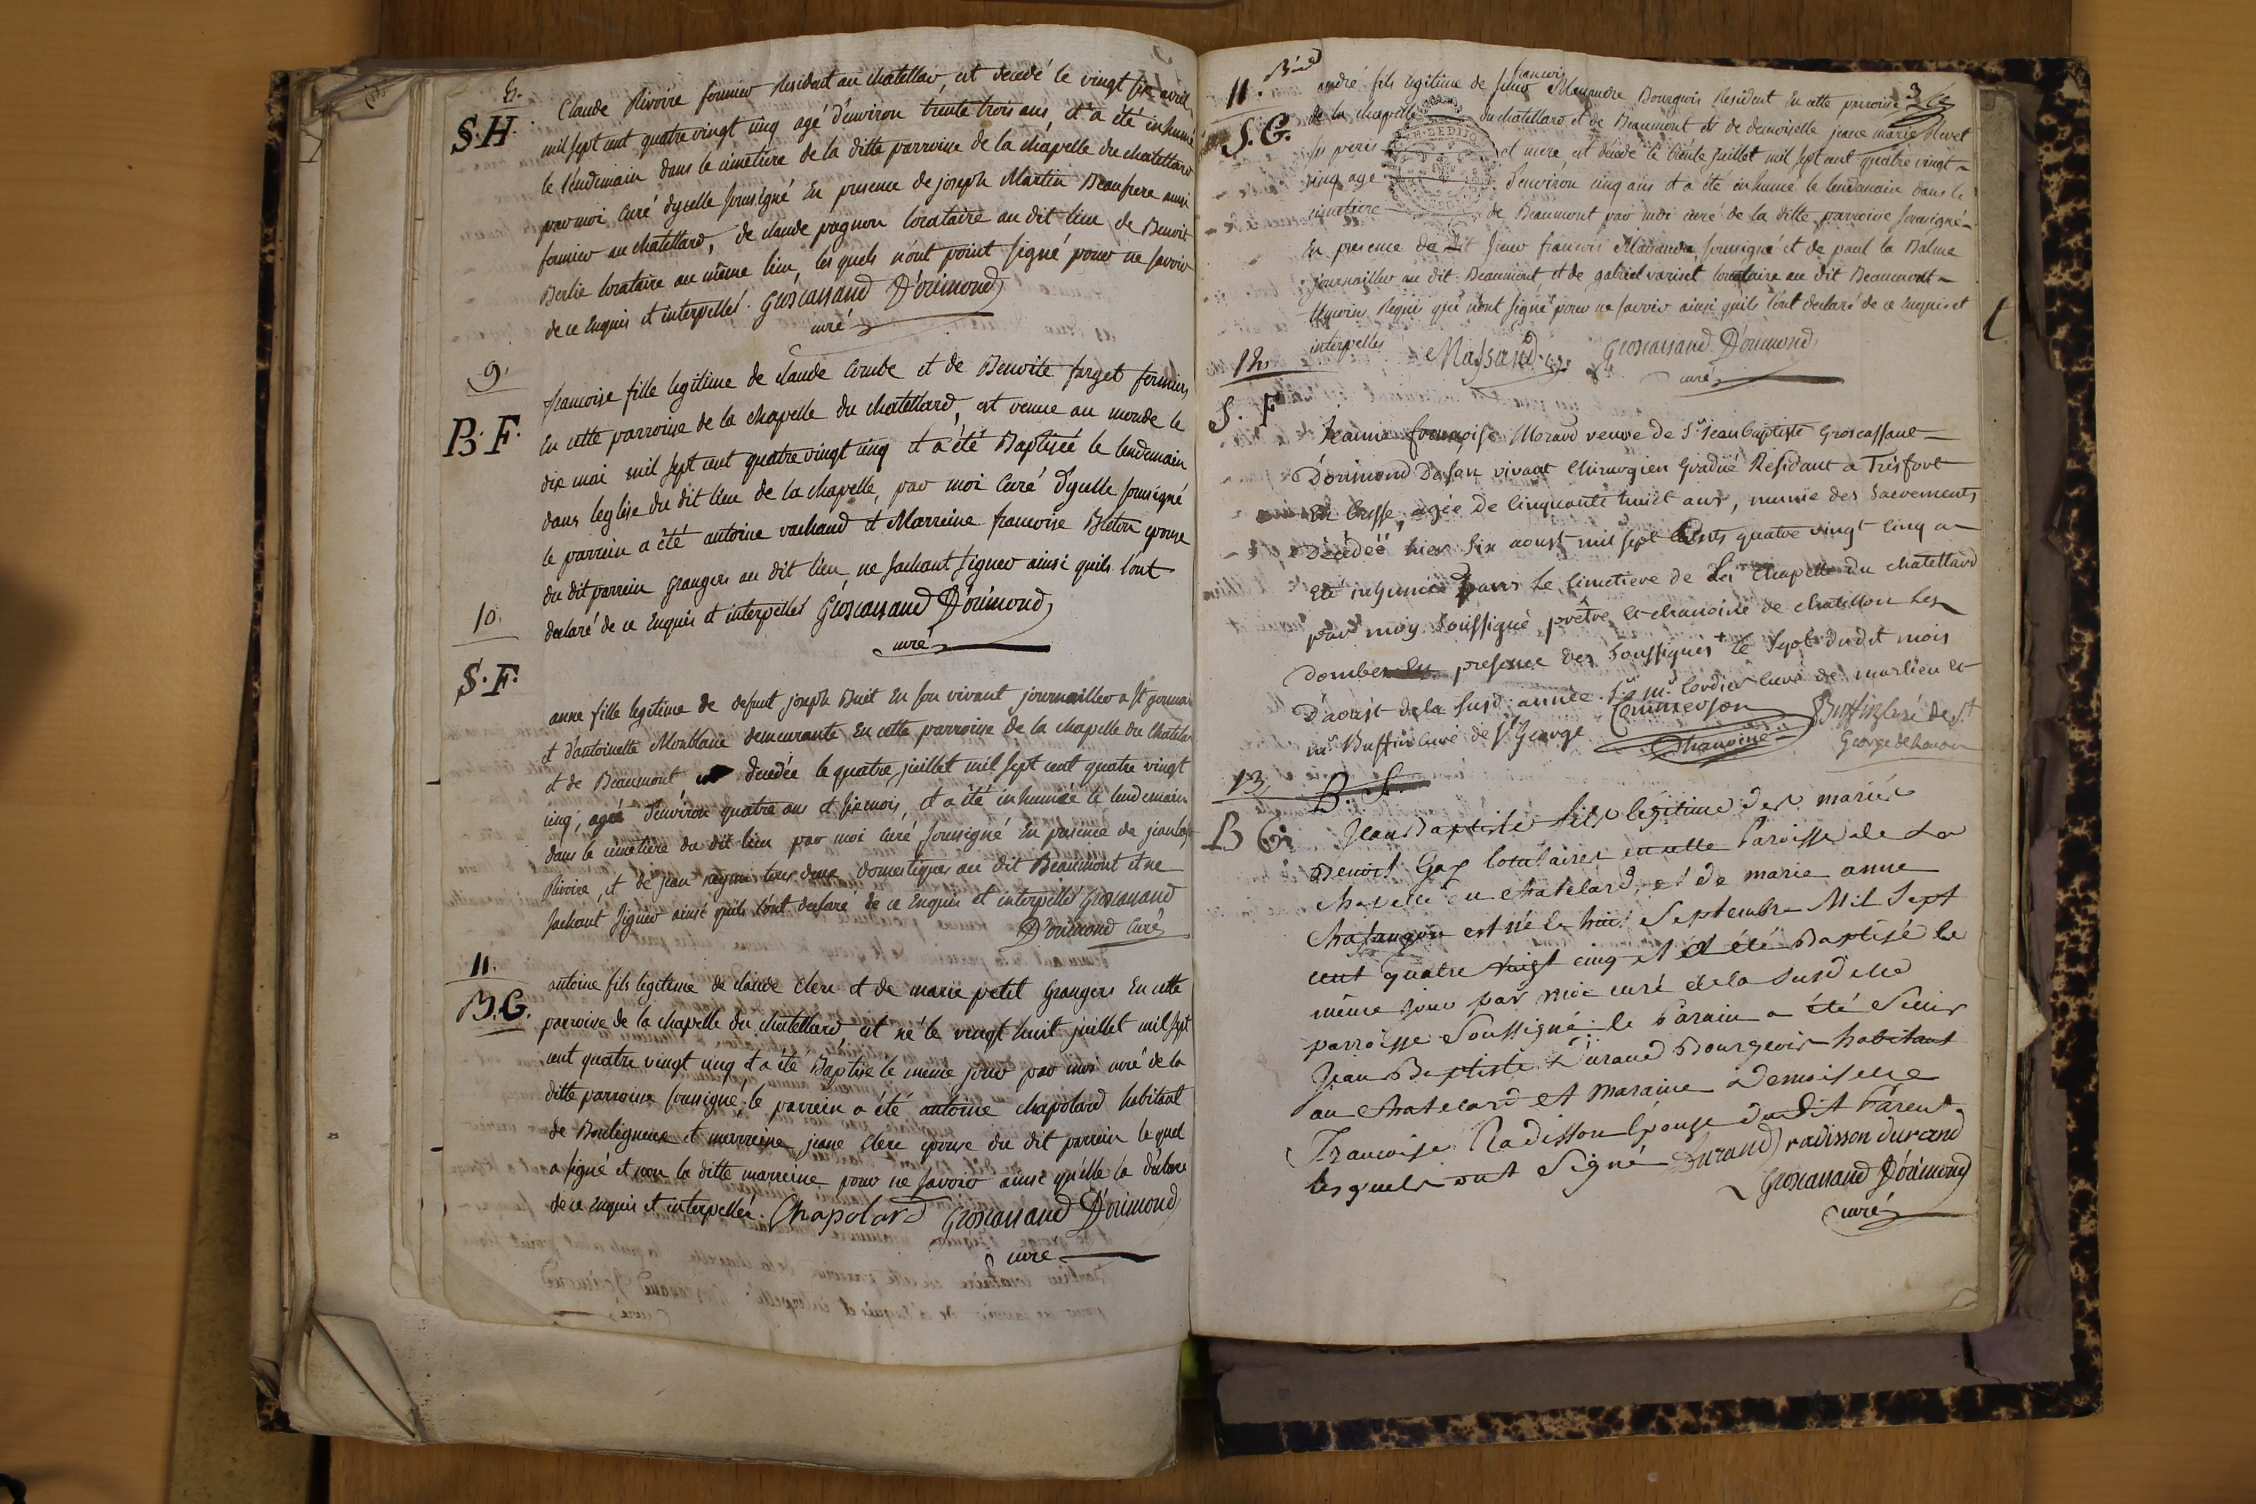 8.
S.H.
Claude Rivoire fermier Resident au chatellard, est decedé le vingt six avril
mil sept cent quatre vingt cinq agé d'environ trente trois ans, et a été inhumé
le lendemain dans le cimetiere de la ditte parroisse de la chapelle du chatellard
par moi Curé d'ycelle soussigné En presence de joseph Martin Beaufrere aussi
fermier au chatellard, de claude pagnon locataire au dit lieu de Benoit
Berlie locataire au même lieu, les quels n'ont point signé pour ne savoir
de ce Enquis et interpellés. Groscassand D'orimond
curé
9.
B.F.
francoise fille legitime de claude Combe et de Benoite farget fermiers
En cette parroisse de la chapelle du chatellard, est venue au monde le
dix mai mil sept cent quatre vingt cinq et a été Baptisée le lendemain
dans leglise du dit lieu de la chapelle, par moi Curé d'ycelle soussigné
le parrein a été antoine vachaud et Marreine francoise Bleton epouse
du dit parrein grangers au dit lieu, ne sachant signer ainsi quils l'ont
declaré de ce Enquis et interpellés Groscassand D'orimond
curé
10.
S.F.
anne fille legitime de defunt joseph Buit En son vivant journaillier a St germain
et d'antoinette Monblanc demeurante En cette parroisse de la chapelle du chatelar
et de Beaumont decedée le quatre juillet mil sept cent quatre vingt
cinq, agée d'environ quatre ans et six mois, et a été inhumée le lendemain
dans le cimetiere du dit lieu par moi Curé soussigné En presence de jean bapt
Rivoire, et de jean tous deux domestiques au dit Beaumont et ne
sachant signer ainsi quils l'ont declaré de ce Enquis et interpellés Groscassand
D'orimond Curé
11.
B.G.
antoine fils legitime de claude clerc et de marie petit Grangers En cette
parroisse de la chapelle du chatellard, est né le vingt huit juillet mil sept
cent quatre vingt cinq et a été Baptisé le même jour par moi curé de la
ditte parroisse soussigné, le parrein a été antoine chapolard habitant
de Bouligneux et marreine jeane clerc epouse du dit parrein le quel
a signé et non la ditte marreine pour ne savoir ainsi qu'elle l'a déclaré
de ce enquis et interpellée. Chapolard Groscassand D'orimond
curé
11. Bis
S.G.
andré fils legitime de sieur francois Massandre Bourgeois Resident En cette parroisse
de la chapelle du chatellard et de Beaumont et de demoiselle jeane marie
ses peres et mere, est decedé le trente juillet mil sept cent quatre vingt
cinq agé d'environ cinq ans et a été inhumé le lendemain dans le
cimetiere de Beaumont par moi curé de la ditte parroisse soussigné
En presence du dit sieur francois Massandre soussigné et de paul la Balme
journaillier au dit Beaumont, et de gabriel variset locataire au dit Beaumont
temoins Requis qui n'ont signé pour ne savoir ainsi quils l'ont declaré de ce Enquis et
interpellés Groscassand D'orimond
curé
12.
S. F
Jeanne françoise Morand veuve de Sr Jean baptiste Groscassant
D'orimond De son vivant Chirurgien Gradué Résidant a Trésfort
En bresse, agée de Cinquante huict ans, munie des Sacrements
Décédéé hier six aoust mil sept Cents quatre vingt Cinq a
Eté inhumée Dans Le Cimetiere de La Chapelle du chatellard
par moy soussigné prêtre Et chanoine de chatillon Les
Dombes En presence des soussignés le sept du dit mois
D'aoust de la susd année. Sr mr Cordier curé de marlieu et
mr Buffin curé de St George Commerson Chanoine Buffin Curé de St
George de
13.
B. S.
B G.
Jean Baptiste fils legitime des mariés
Benoit Gay locataires en cette Paroisse de La
chapelle du chatelard, et de marie anne
est né le huit Septembre Mil Sept
cent quatre vingt cinq et a été Baptisé le
même jour par moi curé de la Susditte
parroisse Soussigné. le Parain a été Sieur
Jean Baptiste Durand Bourgeois habitant
au Chatelard et Maraine Demoiselle
Francoise Radisson Epouse du Dit Parent
lesquels ont Signé Durand radisson durand
Groscassand D'orimond
curé